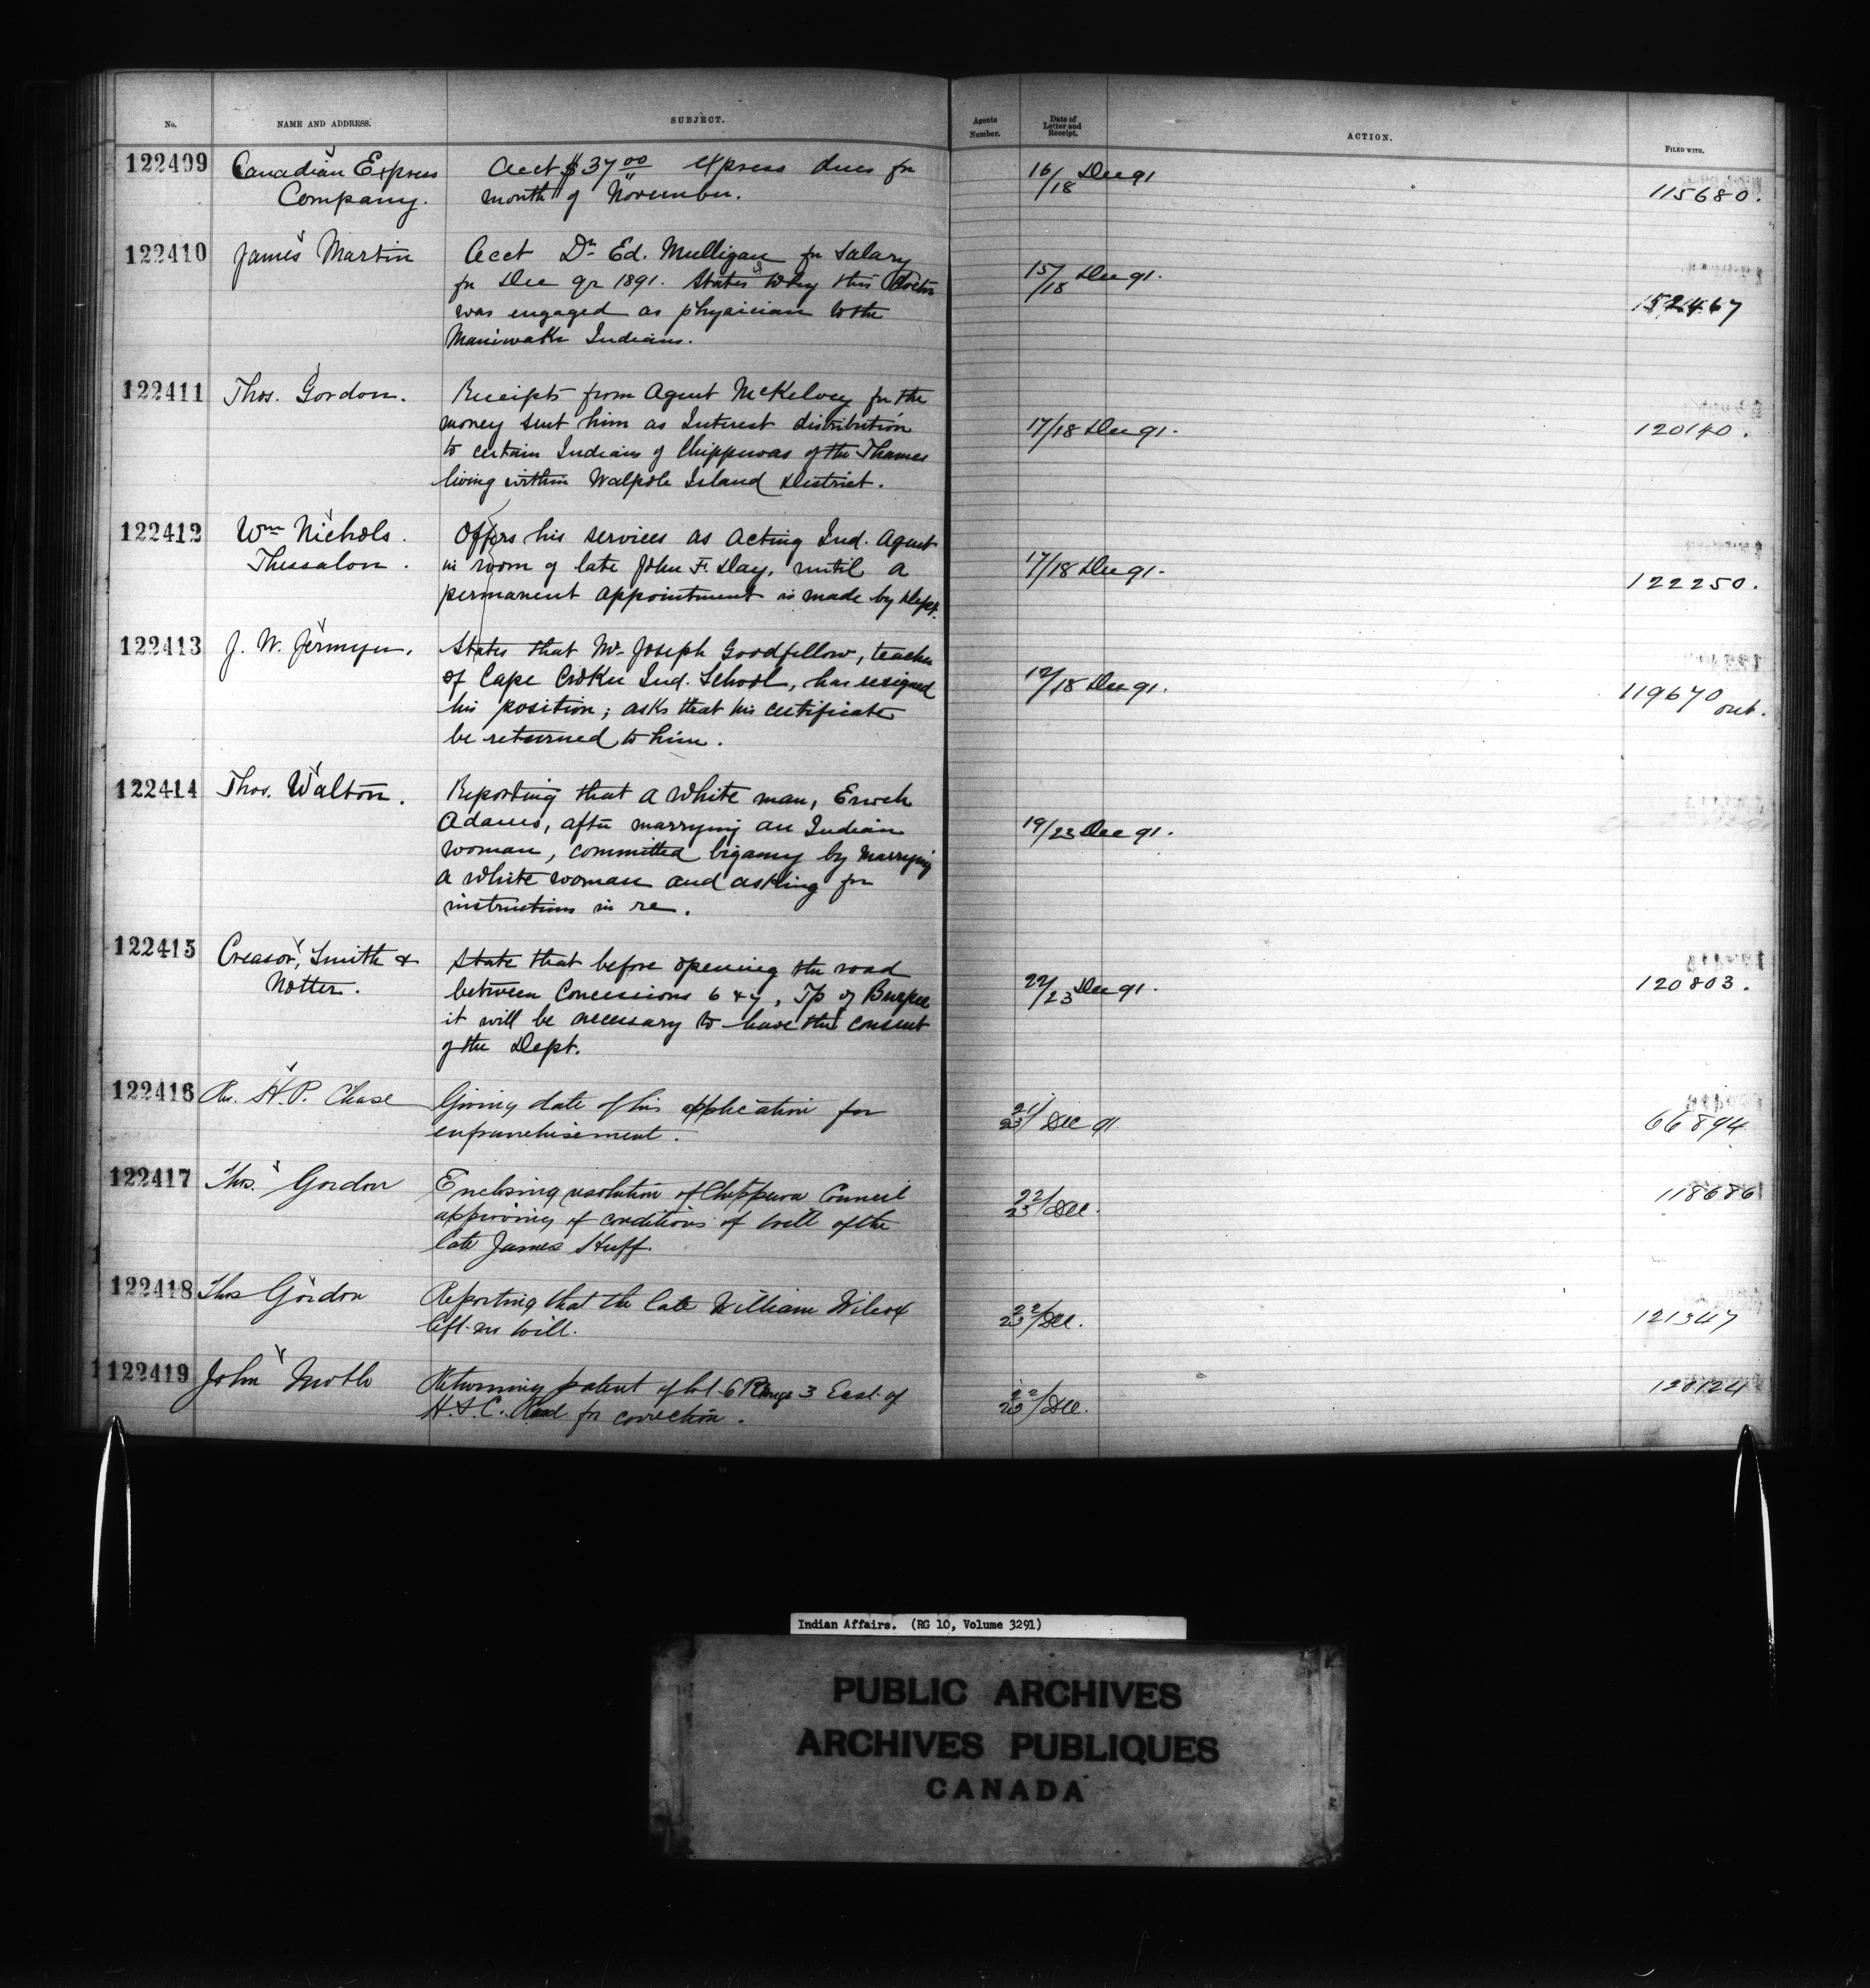 No. NAME AND ADDRESS. SUBJECT. Agents Number. Date of Letter and Receipt. ACTION. FILED WITH.
122409 Canadian Express Acct $37.00 express dues for 16/18 Dec 91 115680.
Company. month of November.
122410 James Martin Acct Dr Ed. Mulligan for Salary 15/18 Dec 91.
for Dec qr 1891. States why this Doctor
was engaged as physician to the
Maniwaki Indians.
122411 Thos. Gordon. Receipts from Agent McKelvey for the
money sent him as Interest distribution 17/18 Dec 91. 120140.
to certain Indians of Chippewas of the Thames
living within Walpole Island District.
122412 Wm Nichols. Offers his services as acting Ind. Agent
Thessalon. in room of late John F. Day, until a 17/18 Dec 91. 122250.
permanent appointment is made by Dept.
122413 J. W. Jermyn. States that Mr. Joseph Goodfellow, teacher
of Cape Croker Ind. School, has resigned 12/18 Dec 91. 119670
his position; asks that his certificate out.
be returned to him.
122414 Thos. Walton. Reporting that a white man, Enoch
Adams, after marrying an Indian 19/23 Dec 91.
woman, committed bigamy by marrying
a white woman and asking for
instructions in re.
122415 Creasor, Smith & State that before opening the road
Notter. between Concessions 6 & 7, Tp of Burpee 22/23 Dec 91. 120803.
it will be necessary to have the consent
of the Dept.
122416 Rev. H. P. Chase Giving date of his application for 21/23 Dec 91 66894
enfranchisement.
122417 Thos. Gordon Enclosing resolution of Chippewa Council 22/23 Dec. 118686
approving of conditions of will of the
late James Huff.
122418 Thos Gordon Reporting that the late William Wilcox
left no will. 22/23 Dec. 121347
122419 John Returning patent of lot 6 Range 3 East of 22/23 Dec. 120124
H. & C. Road for correction.
Indian Affairs. (RG 10, Volume 3291)
PUBLIC ARCHIVES
ARCHIVES PUBLIQUES
CANADA